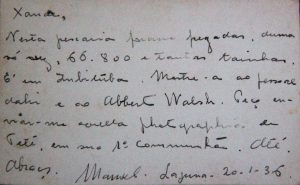 Xanda,
Nesta pescaria foram pegadas, duma
só vez, 66.800 e tantas tainhas.
É em Imbituba. Mostre-a ao pessoal
dahi e ao Abbert Walsh. Peço en-
viar-me aquella photographia de
Teté, em sua 1ª Communhão. Até.
Abraços
Manuel. Laguna - 20-1-36